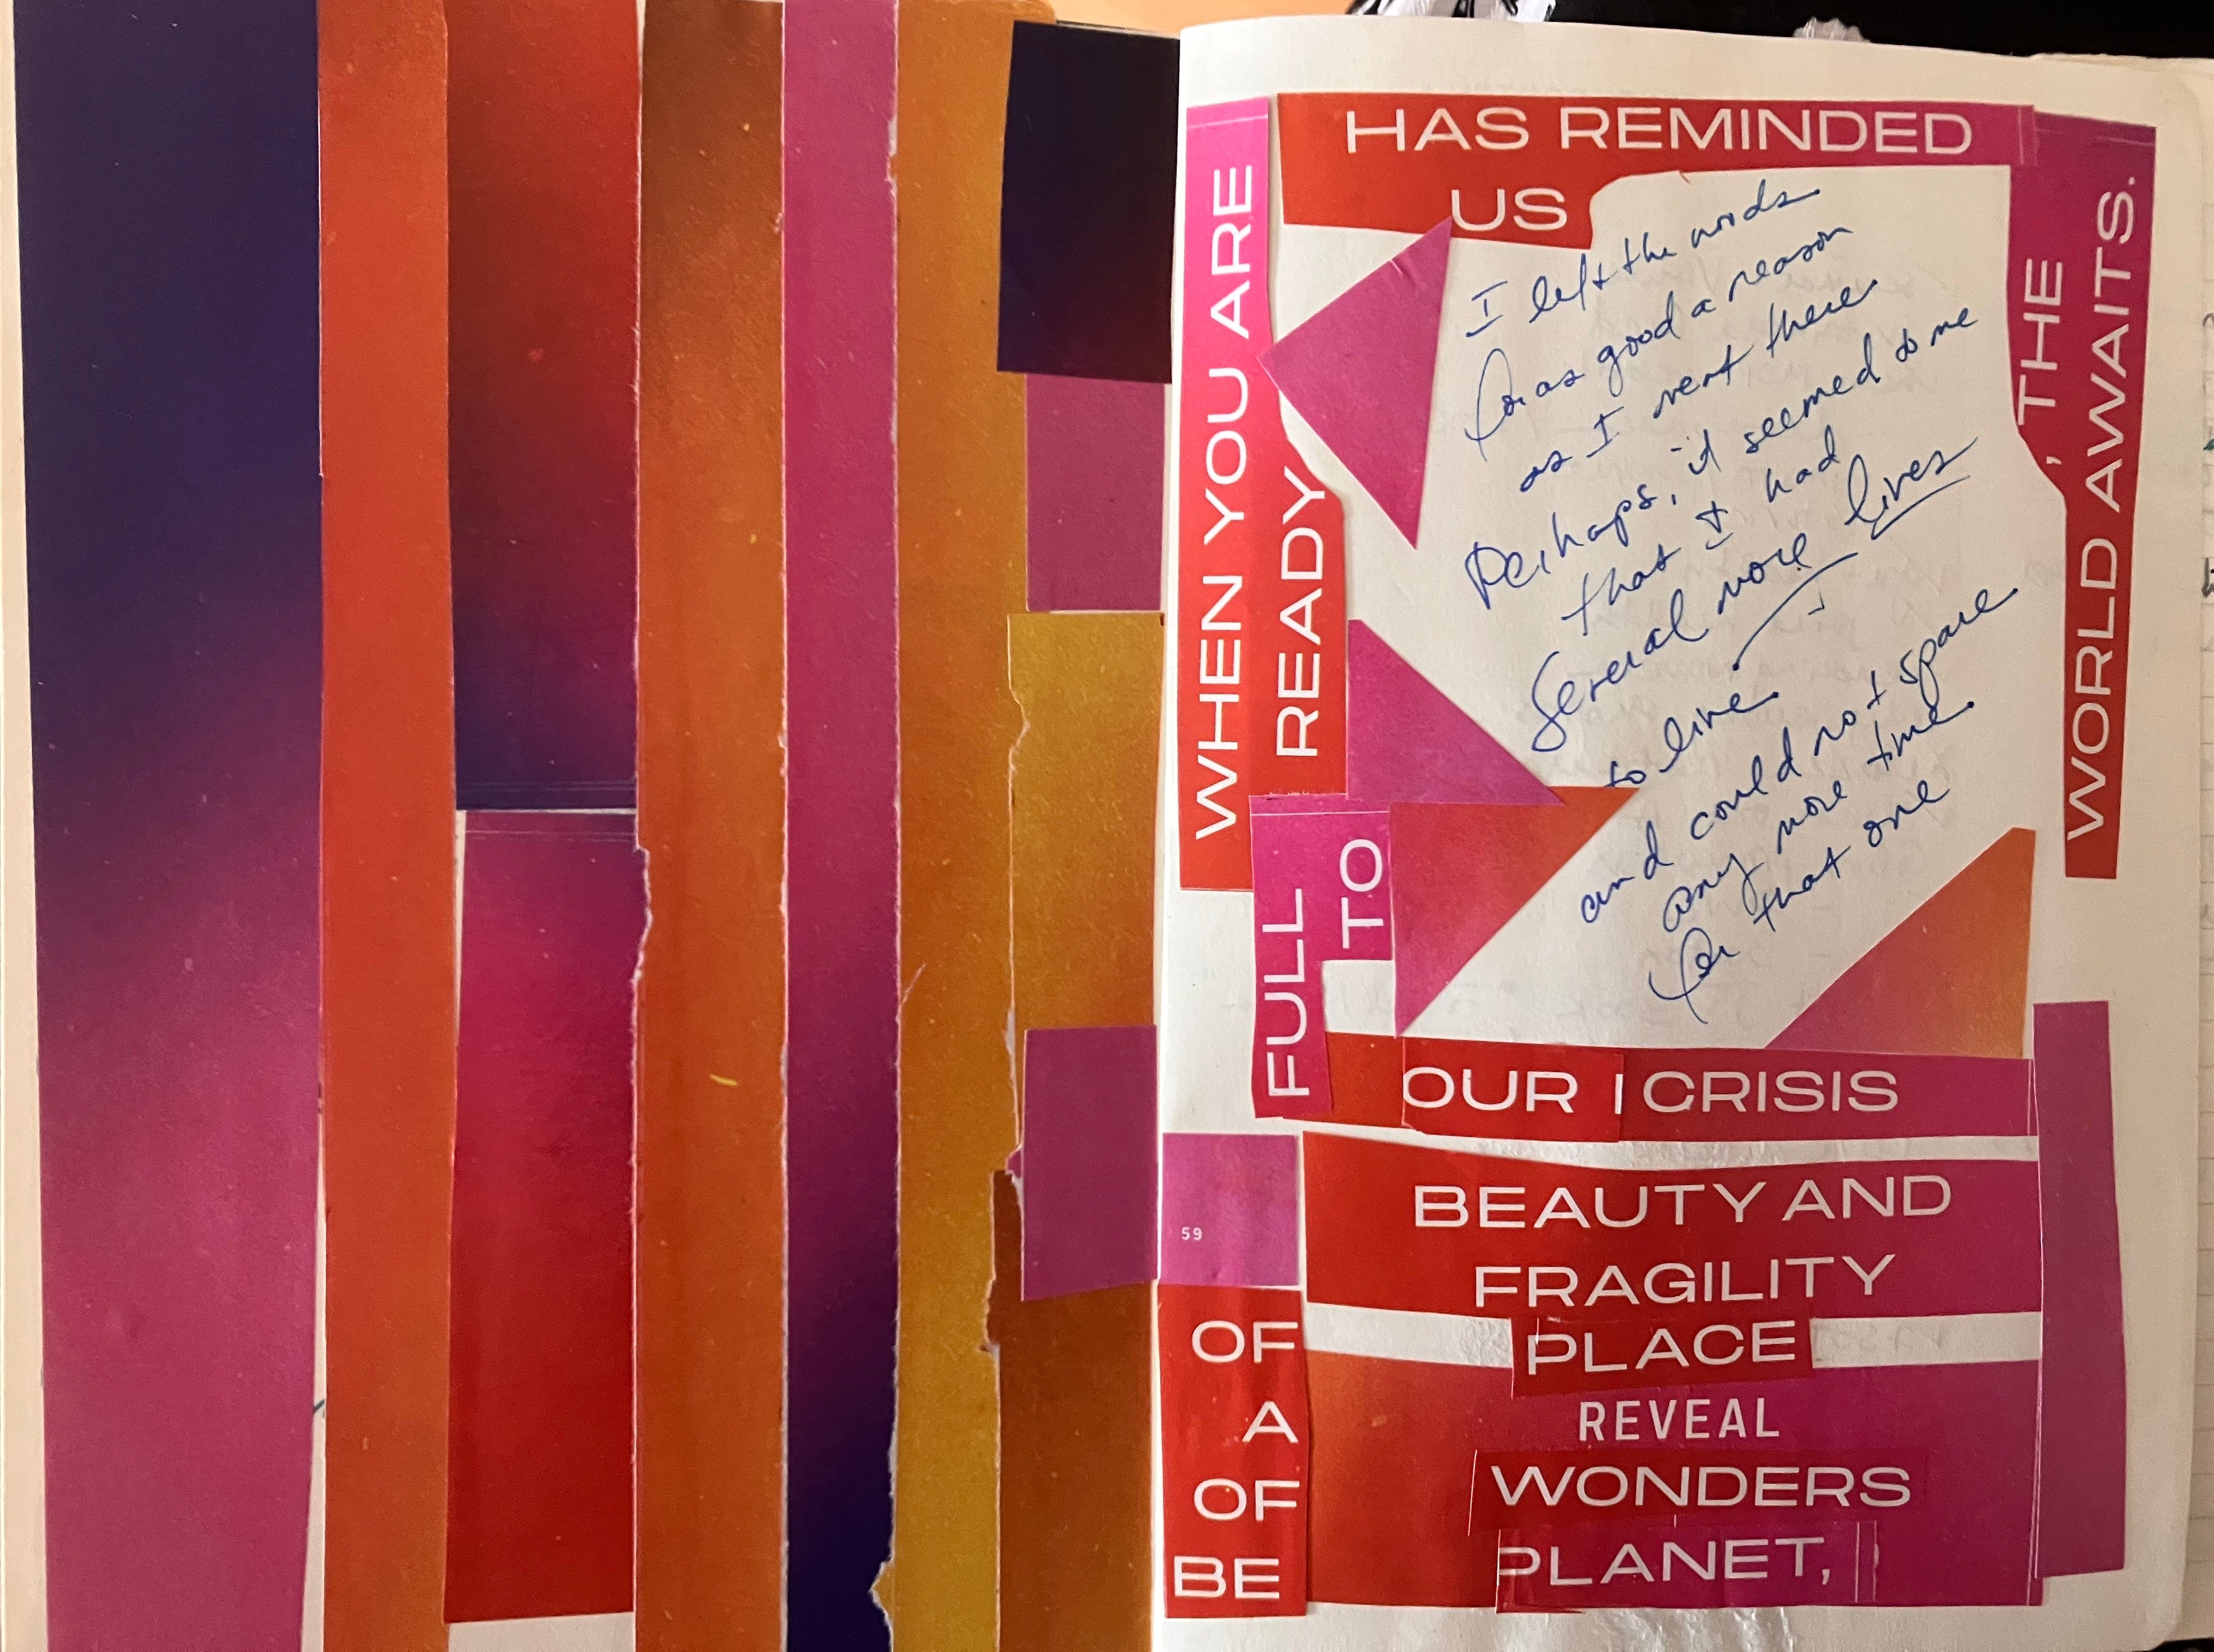 HAS REMINDED
US
WHEN YOU ARE
READY
, THE
WORLD AWAITS.
I left the woods
for as good a reason
as I went there.
Perhaps, it seemed to me
that I had
Several more lives
to live.
and could not spare
any more time
for that one
FULL
TO
OUR
CRISIS
BEAUTY AND
FRAGILITY
59
OF
A
OF
BE
PLACE
REVEAL
WONDERS
PLANET,